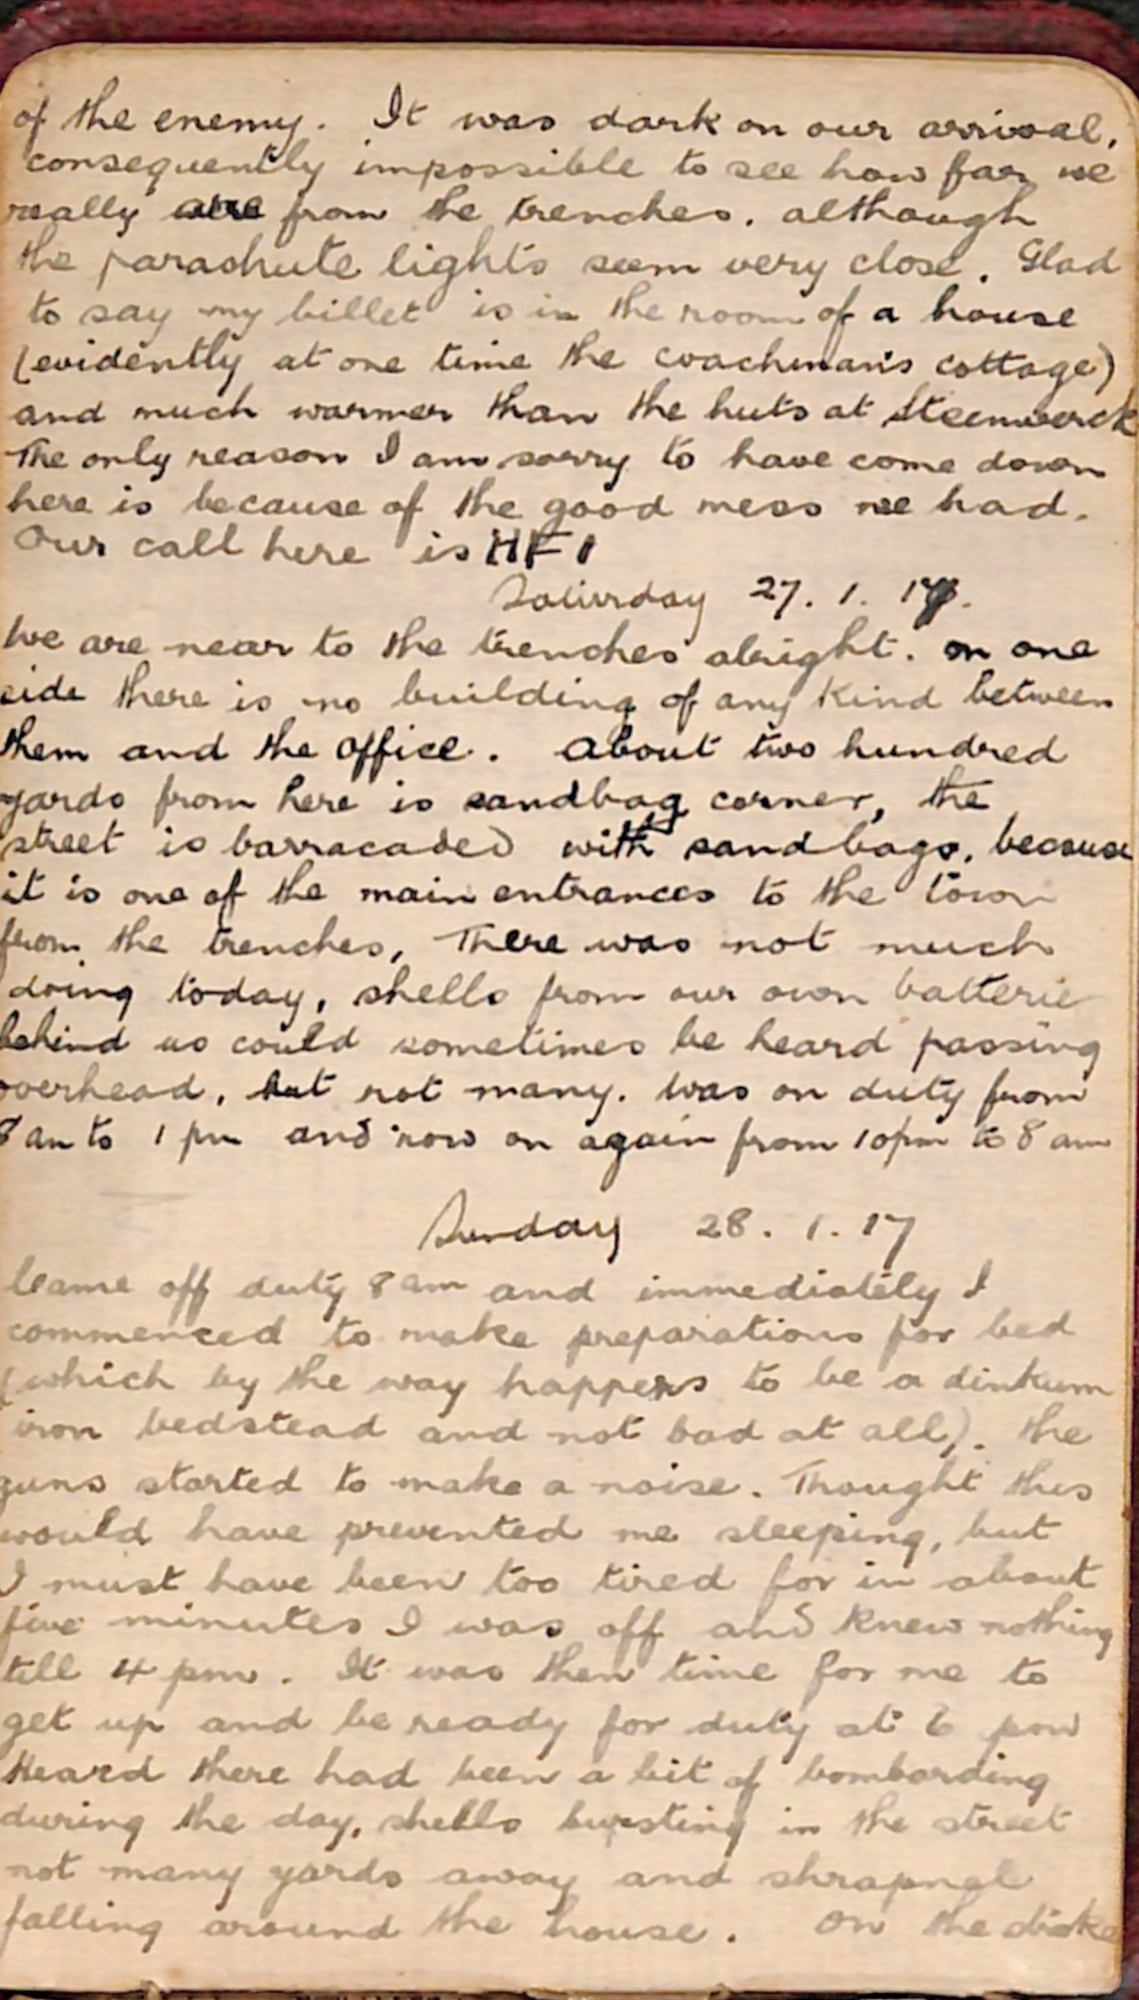 of the enemy. It was dark on our arrival,
consequently impossible to see how far we
really are from the trenches. although
the parachute lights seem very close. Glad
to say my billet is in the room of a house
(evidently at one time the coachman's cottage)
and much warmer than the huts at Steenwerck
The only reason I am sorry to have come down
here is because of the good mess we had.
Our call here is HF1
Saturday 27. 1. 17.
We are near to the trenches alright. on one
side there is no building of any kind between
them and the office. About two hundred
yards from here is sandbag corner, the
street is barracaded with sandbags, because
it is one of the main entrances to the town
from the trenches, There was not much
doing today, shells from our own batterie
behind us could sometimes be heard passing
overhead, but not many. Was on duty from
8 am to 1 pm and now on again from 10pm to 8 am
Sunday 28. 1. 17
Came off duty 8 am and immediately I
commenced to make preparations for bed
(which by the way happens to be a dinkum
iron bedstead and not bad at all). The
guns started to make a noise. Thought this
would have prevented me sleeping, but
I must have been too tired for in about
five minutes I was off and knew nothing
till 4 pm. It was then time for me to
get up and be ready for duty at 6 pm
Heard there had been a bit of bombarding
during the day, shells bursting in the street
not many yards away and shrapnel
falling around the house. On the